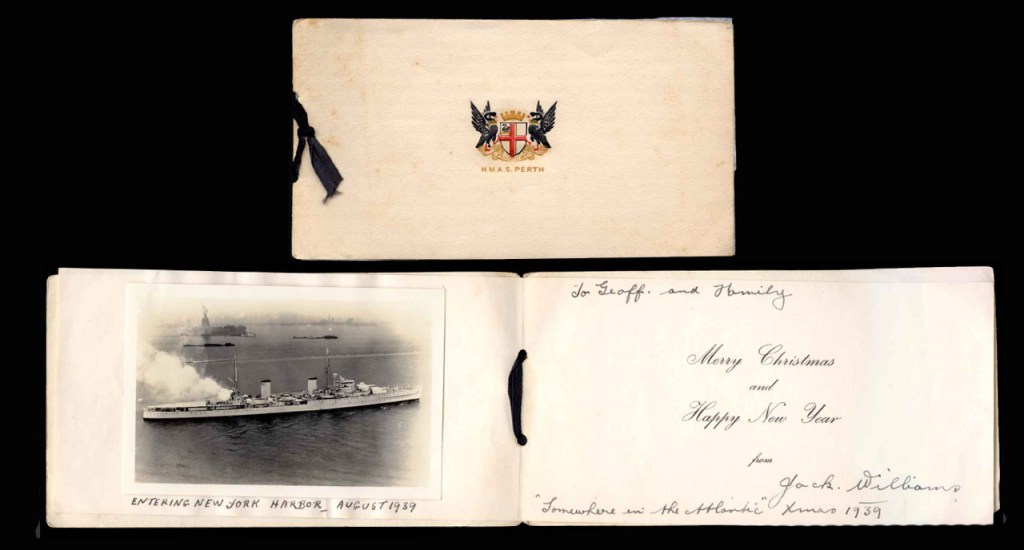 H.M.A.S. PERTH
To Geoff. and Family
Merry Christmas
and
Happy New Year
from
Jack. Williams.
"Somewhere in the Atlantic" Xmas 1939
ENTERING NEW YORK HARBOR_ AUGUST 1939